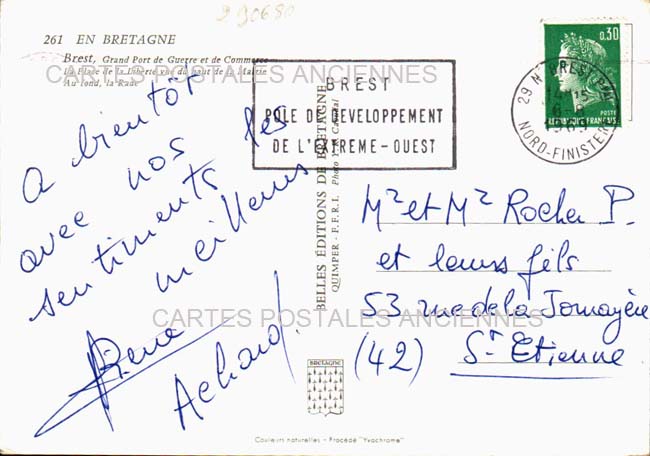 290680
261 EN BRETAGNE
Brest, Grand Port de Guerre et de Commerce
La Place de la Liberté vue du haut de la Mairie
Au fond, la Rade
CARTES POSTALES ANCIENNES
BREST
PÔLE DE DÉVELOPPEMENT
DE L'EXTRÊME-OUEST
0,30
POSTE
RÉPUBLIQUE FRANÇAISE
29 N BREST
NORD-FINISTERE
A bientôt
avec nos
sentiments les
meilleurs
Achard.
BELLES ÉDITIONS DE BRETAGNE
QUIMPER - F.F.R.I. Photo
Mr et Mr Rocha P.
et leurs fils
53 rue de la Jomayère
(42) St Etienne
CARTES POSTALES ANCIENNES
BRETAGNE
Couleurs naturelles - Procédé "Yvachrome"